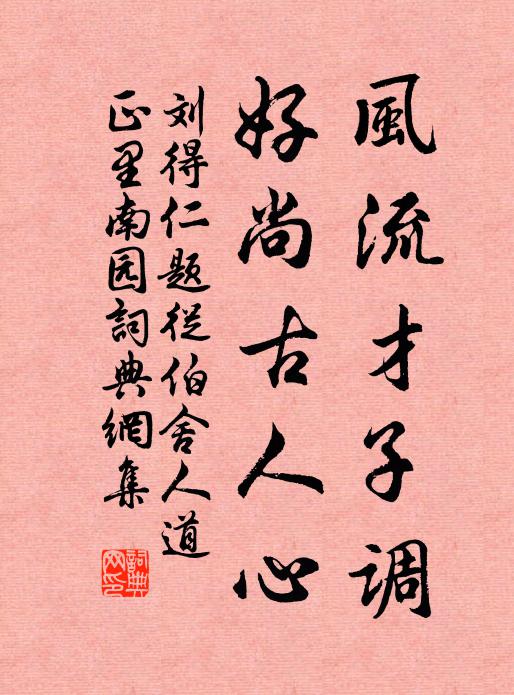 風流才子调
好尚古人心
刘得仁题從伯舍人道
正里南园詞典網集
詞典網印